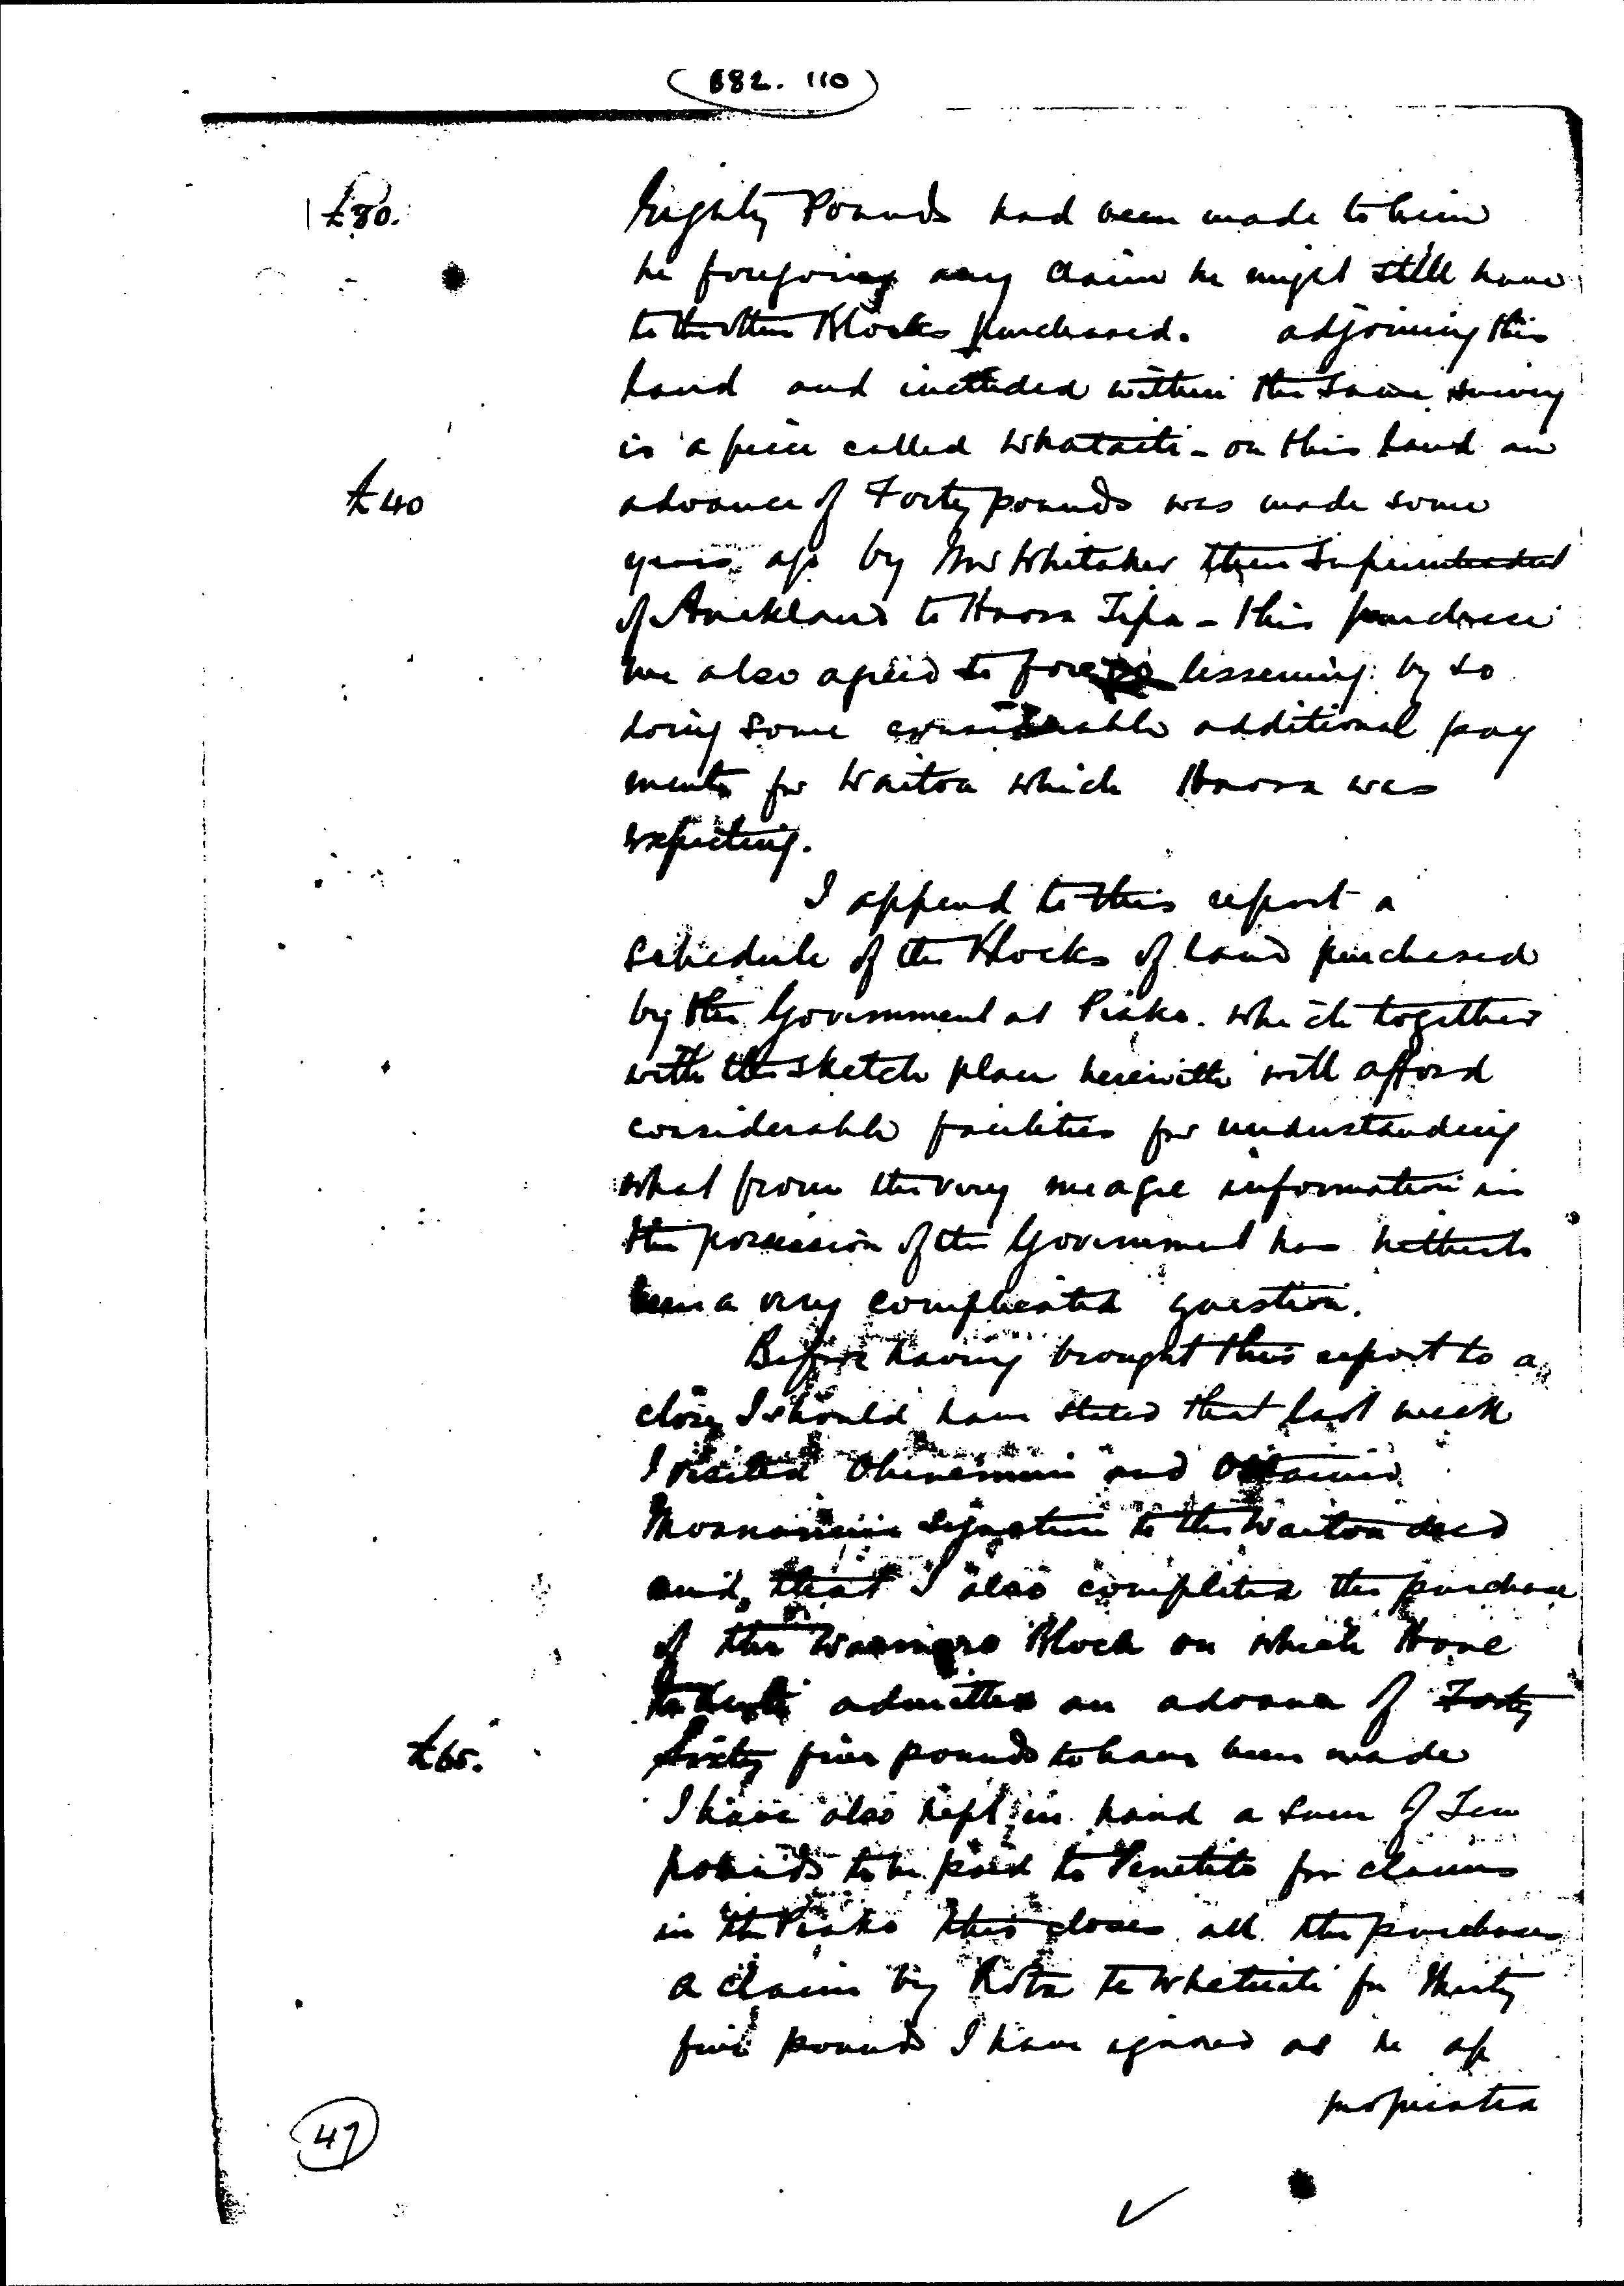 B82. 110
£80.
Eighty Pounds had been made to him
he foregoing any claim he might still have
to the other Blocks purchased. adjoining this
land and included within the same survey
is a piece called Whataiti - on this land an
£40
advance of Forty pounds was made some
years ago by Mr Whitaker then Superintendent
of Auckland to Haora Tipa - this purchase
we also agreed to forego lessening by so
doing some considerable additional pay
ments for Waitoa which Haora was
expecting.
I append to this report a
schedule of the Blocks of land purchased
by the Government at Piako. which together
with the sketch plan herewith will afford
considerable facilities for understanding
what from the very meagre information in
the possession of the Government has hitherto
been a very complicated question.
Before having brought this report to a
close I should have stated that last week
I visited Ohinemuri and obtained
signature to the Waitoa deed
and, that I also completed the purchase
of the Block on which Hone
admitted an advance of Forty
£65.
Sixty five pounds to have been made
I have also kept in hand a sum of Ten
pounds to be paid to Penetito for claims
in the Piako this closes all the purchases
a claim by Rota Te Whetuiti for thirty
five pounds I have ignored as he ap
propriated
47